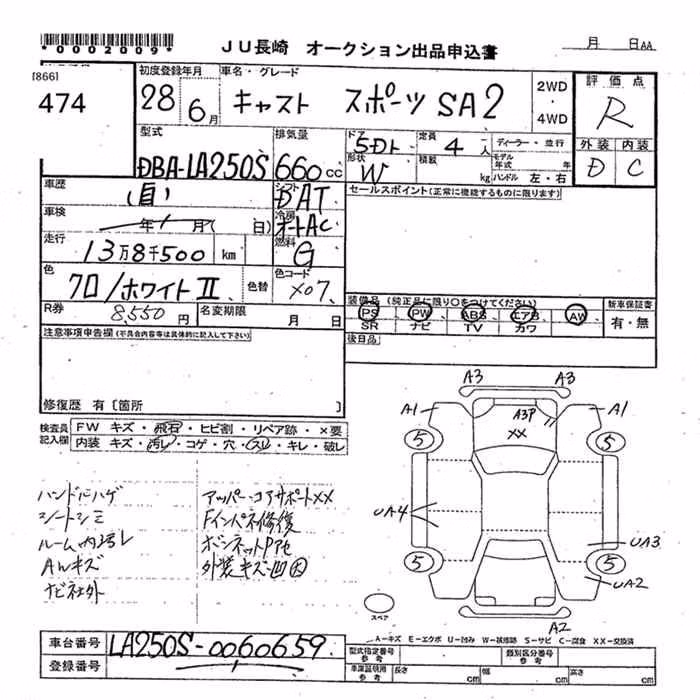 *0002009*
JU長崎 オークション出品申込書
月 日AA
[866]
474
初度登録年月 車名・グレード
28 6月 キャスト スポーツ SA2
2WD ・ 4WD
評価点
R
外装 内装
D C
型式 排気量
DBA-LA250S 660cc
ドア 5Dr 定員 4人 ディーラー・並行
形状 W 積載 kg モデル年式 年 ハンドル 左・右
車歴 シフト DAT
車検 年 月( 日) 冷房 オートAC
走行 13万8千500 km 燃料 G
色 クロ/ホワイトⅡ 色替 色コード X07
R券 8,550円 名変期限 月 日
セールスポイント(正常に機能するものに限ります)
装備品 (純正品に限り○をつけてください)
PS PW ABS エアB AW
SR ナビ TV カワ
新車保証書
有・無
後日品
注意事項申告欄(不具合内容等は具体的に記入して下さい)
修復歴 有 [箇所 ]
検査員記入欄
FW キズ・飛石・ヒビ割・リペア跡・×要
内装 キズ・汚レ・コゲ・穴・スレ・キレ・破レ
ハンドルハゲ
シートシミ
ルーム内汚レ
AWキズ
ナビ社外
アッパー・コアサポートXX
Fインパネ修復
ボンネットPアセ
外装キズ・凹大
A3 A3
A1 A3P A1
XX
5 5
UA4
UA3
5 5
UA2
A2
スペア
A-キズ E-エクボ U-凹み W-板修跡 S-サビ C-腐食 XX-交換済
車台番号 LA250S-0060659
登録番号
型式指定番号 参考 類別区分番号 参考
車庫証明用 参考 長さ cm 幅 cm 高さ cm